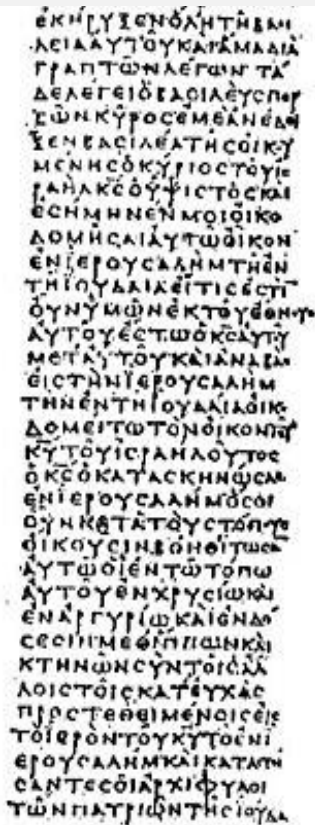 ΕΚΗΡΥΞΕΝΟΛΗΤΗΒΑϹΙ
ΛΕΙΑΑΥΤΟΥΚΑΙΑΜΑΔΙΑ
ΓΡΑΠΤΩΝΛΕΓΩΝΤΑ
ΔΕΛΕΓΕΙΟΒΑϹΙΛΕΥϹΠΕΡ
ϹΩΝΚΥΡΟϹΕΜΕΑΝΕΔΕΙ
ΞΕΝΒΑϹΙΛΕΑΤΗϹΟΙΚΟΥ
ΜΕΝΗϹΟΚΥΡΙΟϹΤΟΥΙϹ
ΡΑΗΛΚϹΟΥΨΙϹΤΟϹΚΑΙ
ΕϹΗΜΗΝΕΝΜΟΙΟΙΚΟ
ΔΟΜΗϹΑΙΑΥΤΩΟΙΚΟΝ
ΕΝΙΕΡΟΥϹΑΛΗΜΤΗΕΝ
ΤΗΙΟΥΔΑΙΑΕΙΤΙϹΕϹΤΙ
ΟΥΝΥΜΩΝΕΚΤΟΥΕΘΝΟΥϹ
ΑΥΤΟΥΕϹΤΩΟΚϹΑΥΤΟΥ
ΜΕΤΑΥΤΟΥΚΑΙΑΝΑΒΑϹ
ΕΙϹΤΗΝΙΕΡΟΥϹΑΛΗΜ
ΤΗΝΕΝΤΗΙΟΥΔΑΙΑΟΙΚΟ
ΔΟΜΕΙΤΩΤΟΝΟΙΚΟΝΤΟΥ
ΚΥΤΟΥΙϹΡΑΗΛΟΥΤΟϹ
ΟΚϹΟΚΑΤΑϹΚΗΝΩϹΑϹ
ΕΝΙΕΡΟΥϹΑΛΗΜΟϹΟΙ
ΟΥΝΚΑΤΑΤΟΥϹΤΟΠΟΥϹ
ΟΙΚΟΥϹΙΝΒΟΗΘΙΤΩϹΑΝ
ΑΥΤΩΟΙΕΝΤΩΤΟΠΩ
ΑΥΤΟΥΕΝΧΡΥϹΙΩΚΑΙ
ΕΝΑΡΓΥΡΙΩΚΑΙΕΝΔΟ
ϹΕϹΙΝΜΕΘΙΠΠΩΝΚΑΙ
ΚΤΗΝΩΝϹΥΝΤΟΙϹΑΛ
ΛΟΙϹΤΟΙϹΚΑΤΕΥΧΑϹ
ΠΡΟϹΤΕΘΕΙΜΕΝΟΙϹΕΙϹ
ΤΟΙΕΡΟΝΤΟΥΚΥΤΟΕΝΙ
ΕΡΟΥϹΑΛΗΜΚΑΙΚΑΤΑϹΤΗ
ϹΑΝΤΕϹΟΙΑΡΧΙΦΥΛΟΙ
ΤΩΝΠΑΤΡΙΩΝΤΗϹΙΟΥΔΑ